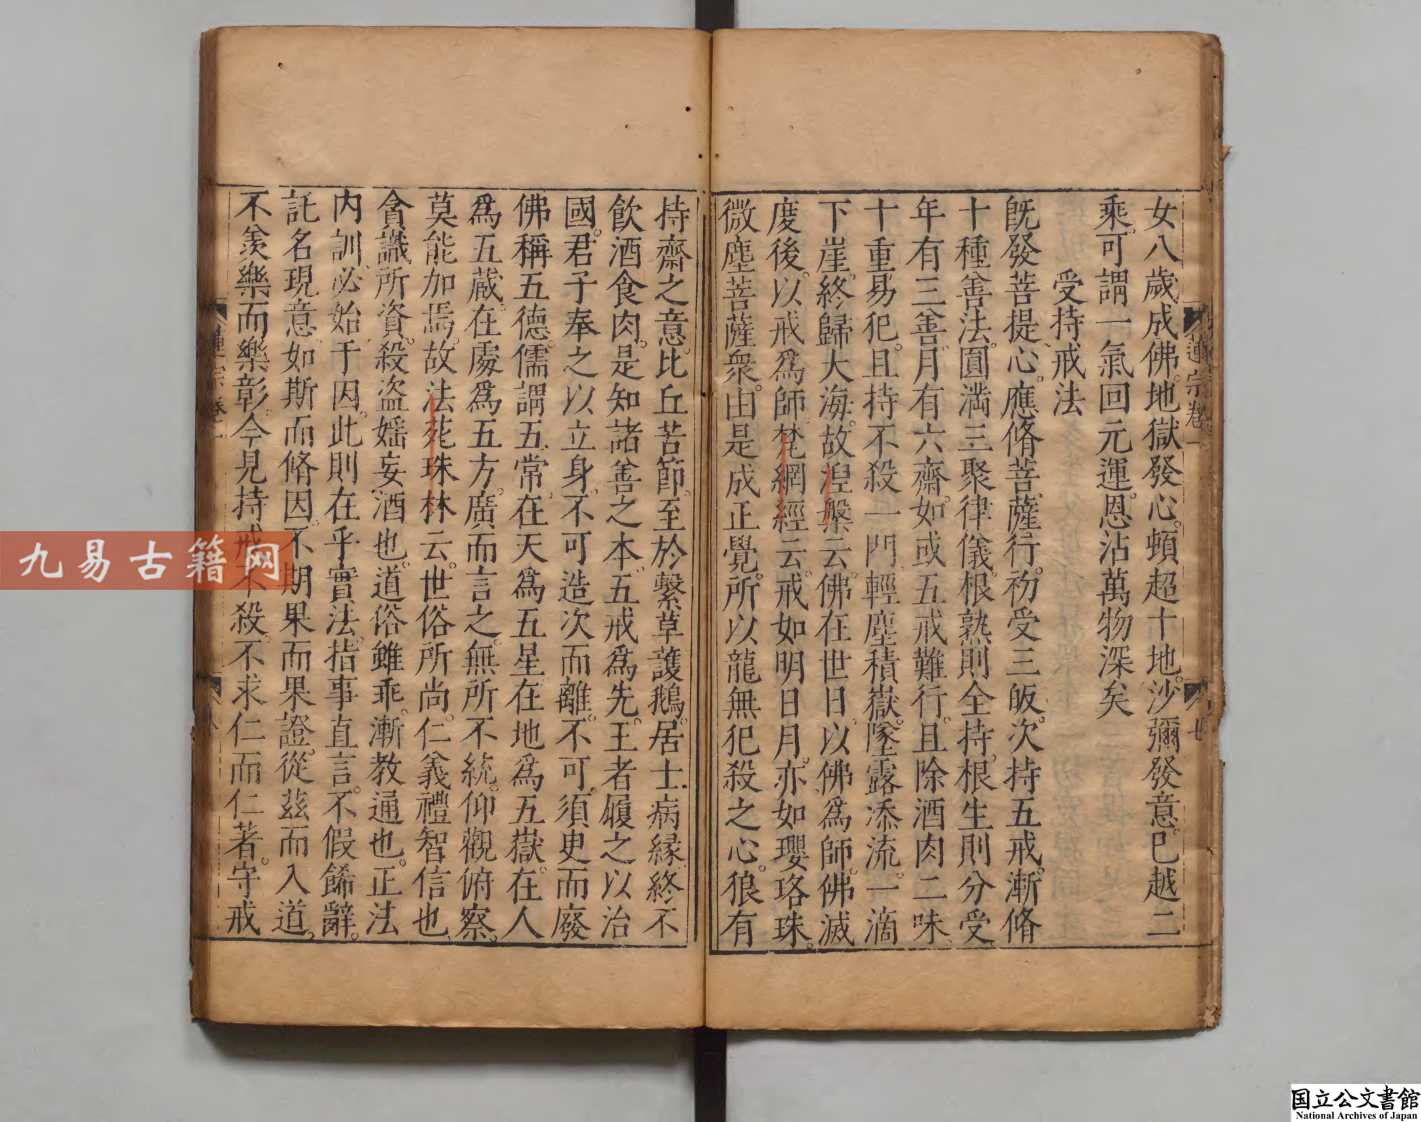 女八歲成佛。地獄發心。頓超十地。沙彌發意。已越二
乘。可謂一氣回元運。恩沾萬物深矣
受持戒法
既發菩提心。應脩菩薩行。初受三皈。次持五戒。漸脩
十種善法。圓滿三聚律儀。根熟則全持。根生則分受
年有三善月。有六齋。如或五戒難行。且除酒肉二味
十重易犯。且持不殺一門。輕塵積嶽。墜露添流。一滴
下崖。終歸大海。故涅槃云。佛在世日。以佛爲師。佛滅
度後。以戒爲師。梵網經云。戒如明日月。亦如瓔珞珠。
微塵菩薩衆。由是成正覺。所以龍無犯殺之心。狼有
持齋之意。比丘苦節。至於繫草護鵝。居士病緣。終不
飲酒食肉。是知諸善之本。五戒爲先。王者履之以治
國。君子奉之以立身。不可造次而離。不可須臾而廢
佛稱五德。儒謂五常。在天爲五星。在地爲五嶽。在人
爲五藏。在處爲五方。廣而言之。無所不統。仰觀俯察。
莫能加焉。故法苑珠林云。世俗所尚。仁義禮智信也
貪識所資。殺盜婬妄酒也。道俗雖乖。漸教通也。正法
內訓。必始于因。此則在乎實法。指事直言。不假餙辭。
託名現意。如斯而脩因。不期果而果證。從茲而入道。
不羨樂而樂彰。今見持戒不殺。不求仁而仁著。守戒
蓮宗卷一
蓮宗卷一
九易古籍网
国立公文書館
National Archives of Japan